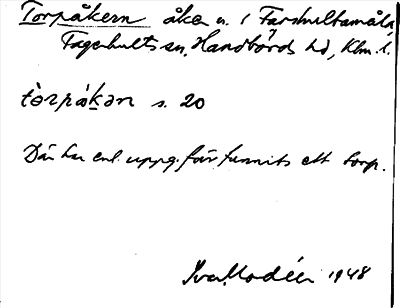 Torpåkern åker n. i Farshultamåla,
Fagerhults sn, Handbörds hd, Klm. l.
tòrpåkən s. 20
Där har enl. uppg. förr funnits ett torp.
Ivar Modéer 1948